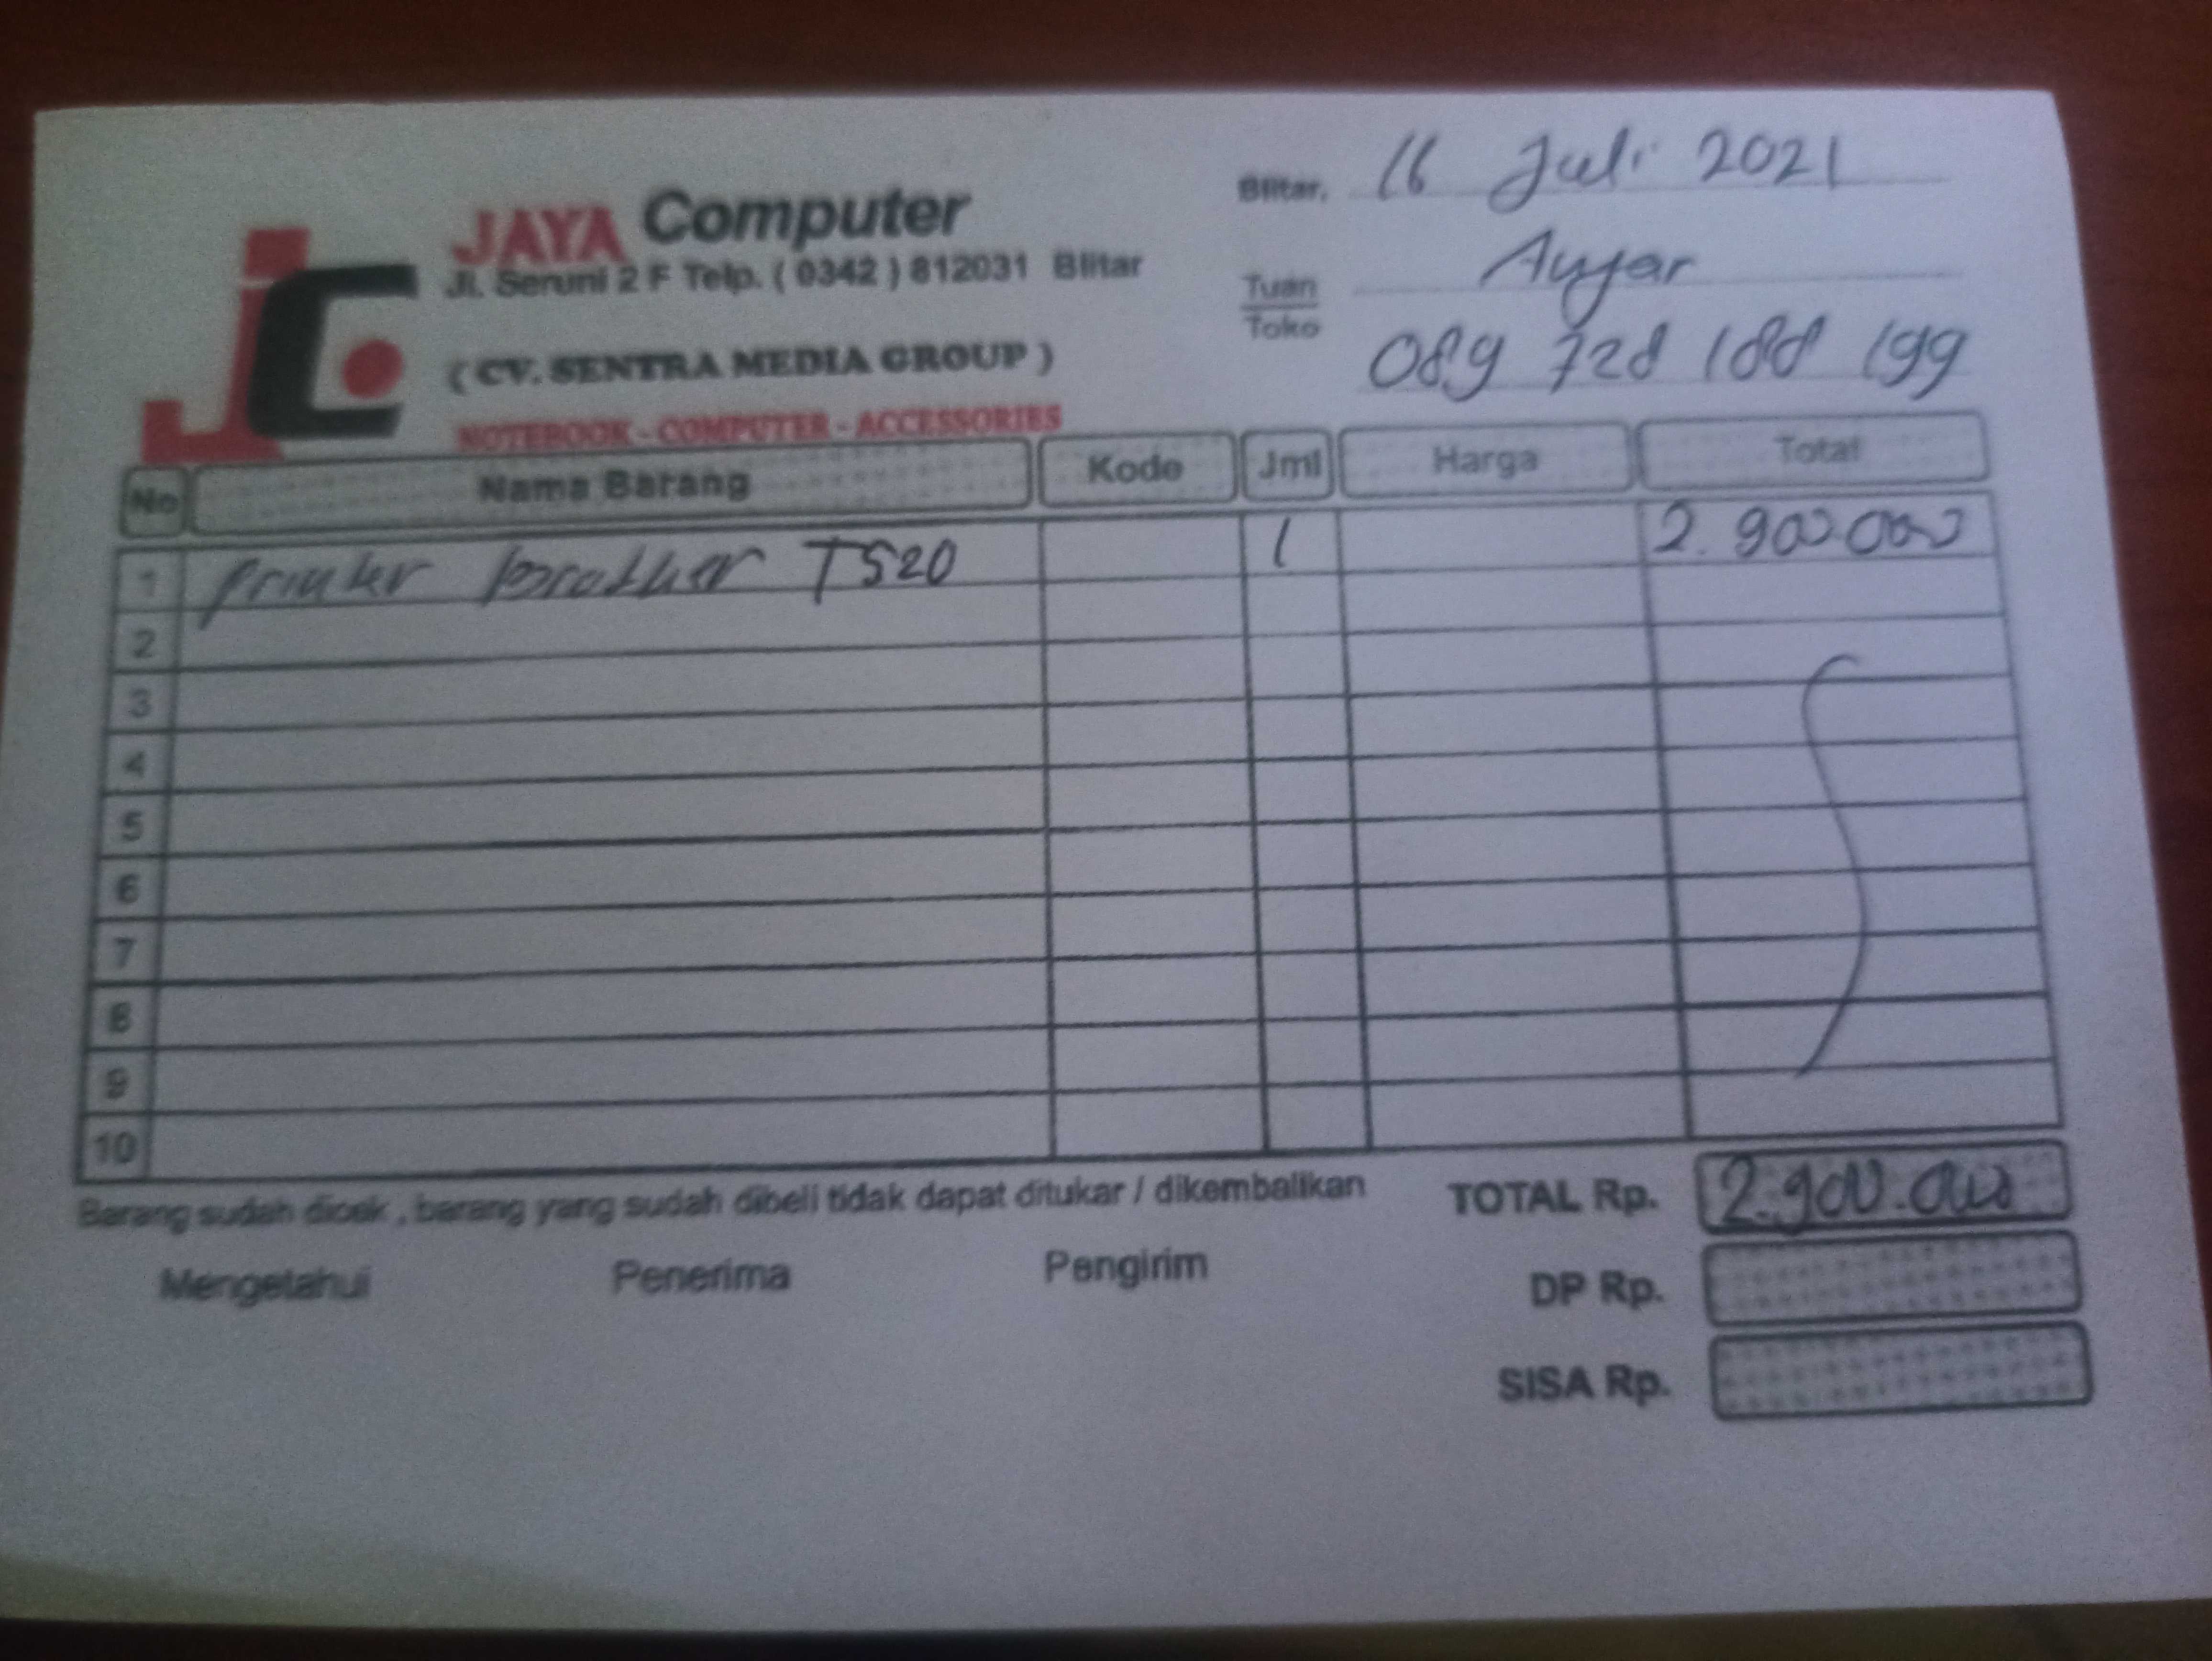 JAYA Computer
Jl. Seruni 2 F Telp. ( 0342 ) 812031 Blitar
( CV. SENTRA MEDIA GROUP )
NOTEBOOK - COMPUTER - ACCESSORIES
Blitar, 16 Juli 2021
Tuan
Toko
089 728 188 199
No Nama Barang Kode Jml Harga Total
1 printer brother T520 1 2.900.000
2
3
4
5
6
7
8
9
10
Barang sudah dicek , barang yang sudah dibeli tidak dapat ditukar / dikembalikan
TOTAL Rp. 2.900.000
Mengetahui Penerima Pengirim
DP Rp.
SISA Rp.